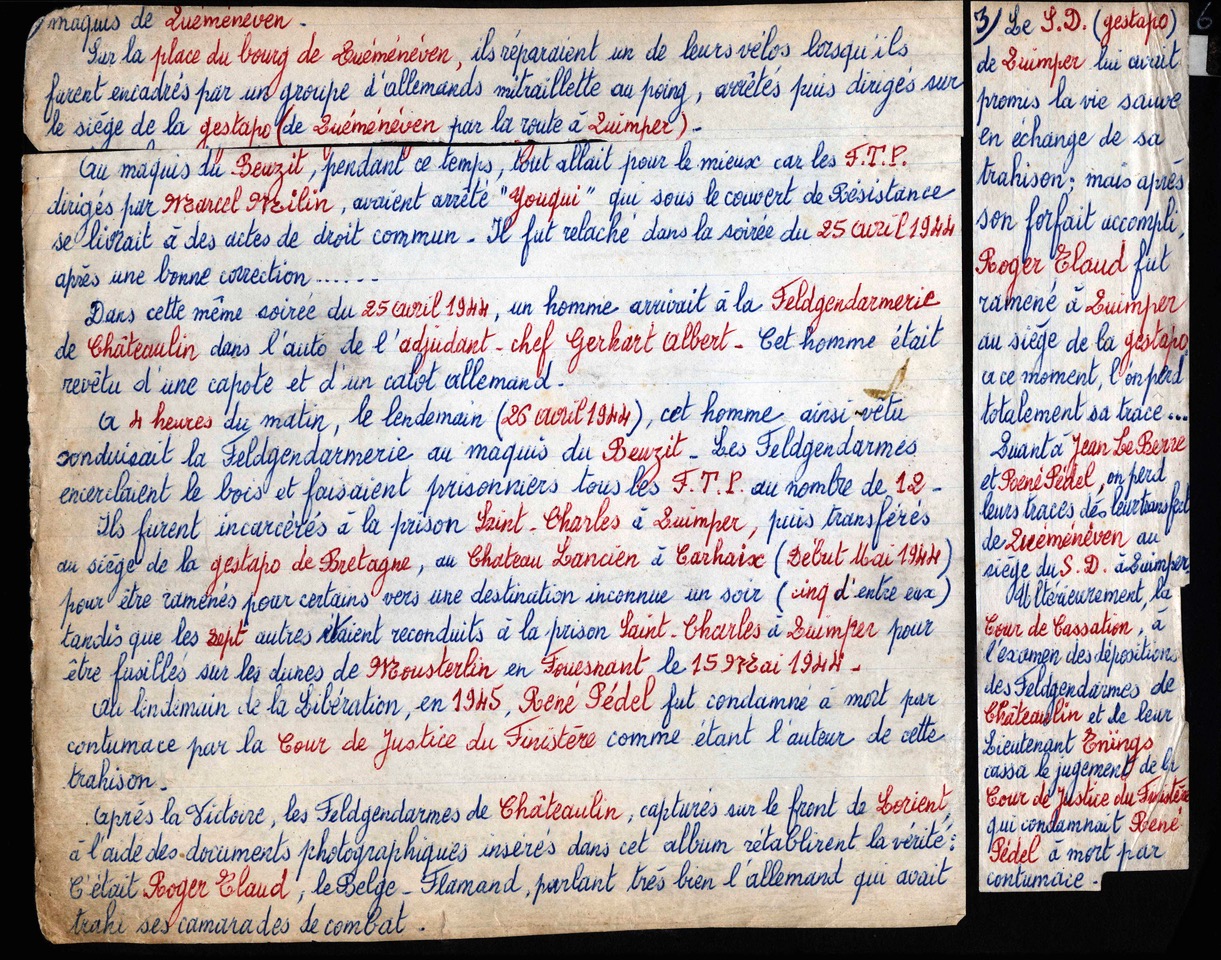 maquis de Quéménéven.
Sur la place du bourg de Quéménéven, ils réparaient un de leurs vélos lorsqu'ils
furent encadrés par un groupe d'allemands mitraillette au poing, arrêtés puis dirigés sur
le siège de la gestapo (de Quéménéven par la route à Quimper).
Au maquis du Beuzit, pendant ce temps, tout allait pour le mieux car les F.T.P.
dirigés par Marcel Milin, avaient arrêté "Youqui" qui sous le couvert de Résistance
se livrait à des actes de droit commun - Il fut relaché dans la soirée du 25 avril 1944
après une bonne correction ......
Dans cette même soirée du 25 avril 1944, un homme arrivait à la Feldgendarmerie
de Châteaulin dans l'auto de l'adjudant-chef Gerhart Albert - Cet homme était
revêtu d'une capote et d'un calot allemand.
A 4 heures du matin, le lendemain (26 avril 1944), cet homme ainsi vêtu
conduisait la Feldgendarmerie au maquis du Beuzit - Les Feldgendarmes
encerclaient le bois et faisaient prisonniers tous les F.T.P. au nombre de 12 -
Ils furent incarcérés à la prison Saint-Charles à Quimper, puis transférés
au siège de la gestapo de Bretagne, au Chateau Lancien à Carhaix (Début Mai 1944)
pour être ramenés pour certains vers une destination inconnue un soir (cinq d'entre eux)
tandis que les sept autres étaient reconduits à la prison Saint-Charles à Quimper pour
être fusillés sur les dunes de Mousterlin en Fouesnant le 15 Mai 1944 -
Au lendemain de la Libération, en 1945, René Pédel fut condamné à mort par
contumace par la Cour de Justice du Finistère comme étant l'auteur de cette
trahison.
Après la Victoire, les Feldgendarmes de Châteaulin, capturés sur le front de Lorient,
à l'aide des documents photographiques insérés dans cet album rétablirent la vérité:
C'était Roger Elaud, le Belge-Flamand, parlant très bien l'allemand qui avait
trahi ses camarades de combat.
3) Le S.D. (gestapo)
de Quimper lui avait
promis la vie sauve
en échange de sa
trahison; mais après
son forfait accompli,
Roger Elaud fut
ramené à Quimper
au siège de la gestapo
a ce moment, l'on perd
totalement sa trace...
Quant à Jean Le Berre
et René Pédel, on perd
leurs traces dès leur transfert
de Quéménéven au
siège du S.D. à Quimper
Ultérieurement, la
Cour de Cassation, à
l'examen des dépositions
des Feldgendarmes de
Châteaulin et de leur
Lieutenant Enings
cassa le jugement de la
Cour de Justice du Finistère
qui condamnait René
Pédel à mort par
contumace -
6